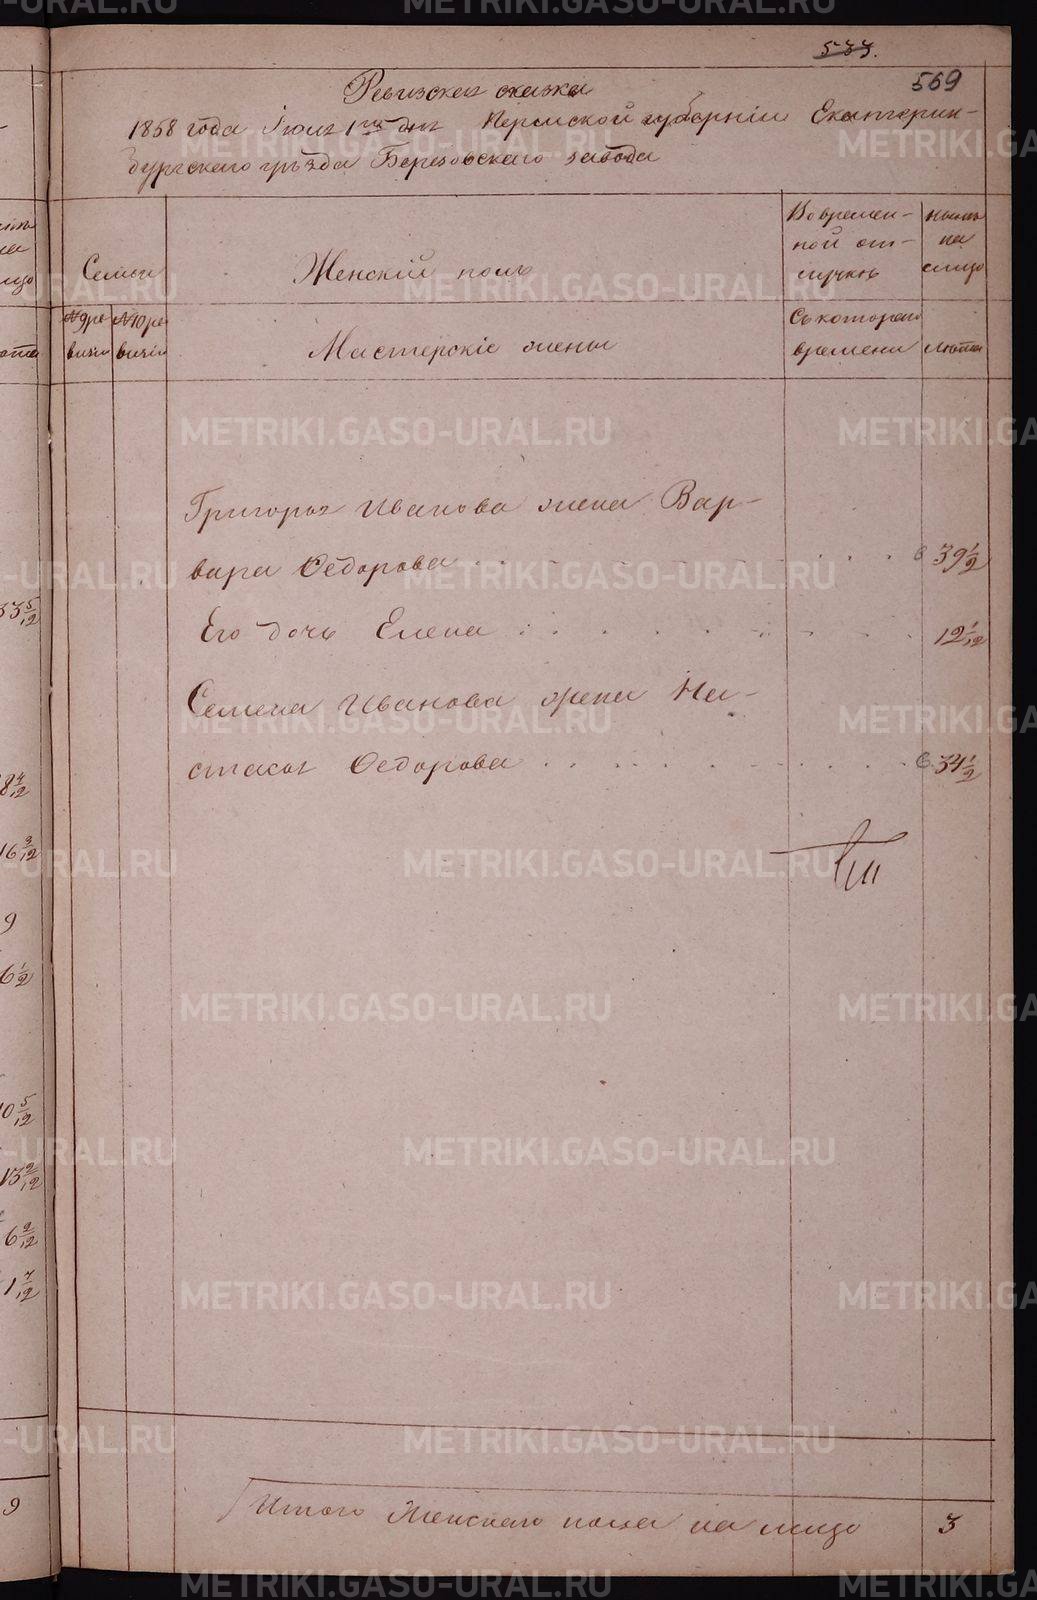 577.
569
Ревизская сказка
1858 года Июня 1го дня Пермской губерніи Екатерин-
бургскаго уѣзда Березовскаго завода
Семьи
Женскій полъ
Во времен-
ной от-
лучкѣ
Нынѣ
на
лицо
№ 9 ре-
визіи
№ 10 ре-
визіи
Мастерскіе жены
Съ котораго
времени
Лѣта
Григорья Иванова жена Вар-
вара Ѳедорова 39 1/2
Его дочь Елена 12 1/12
Семена Иванова жена На-
стасья Ѳедорова 34 1/2
Итого Женскаго пола на лицо 3
33 5/12
8 4/12
16 3/12
9
6 1/2
10 5/12
13 2/12
6 2/12
1 7/12
9
METRIKI.GASO-URAL.RU